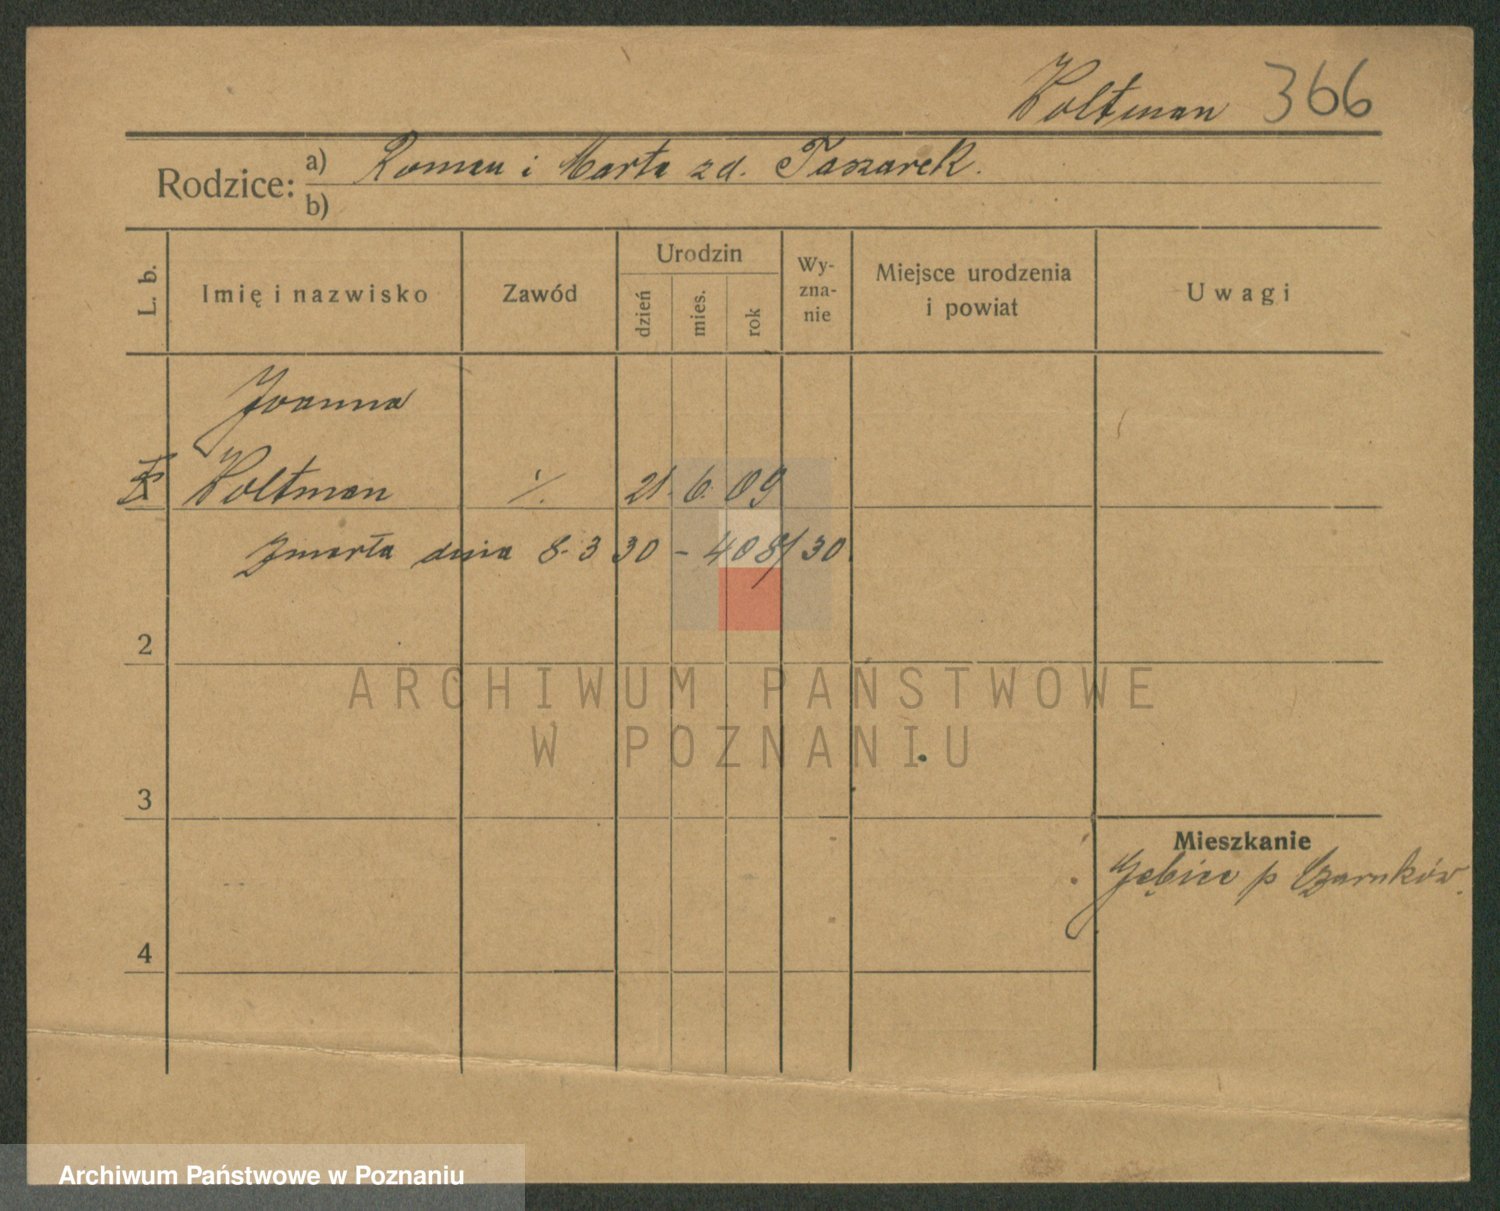 Woltman 366
Rodzice: a) Roman i Marta zd. Taszarek.
b)
L. b.
Imię i nazwisko
Zawód
Urodzin
dzień
mies.
rok
Wy-
zna-
nie
Miejsce urodzenia
i powiat
Uwagi
Joanna
Woltman ·/. 21. 6. 09
Zmarła dnia 8. 3 30 – 408/30.
2
3
4
Mieszkanie
Gębice p Czarnków.
ARCHIWUM PAŃSTWOWE
W POZNANIU
Archiwum Państwowe w Poznaniu